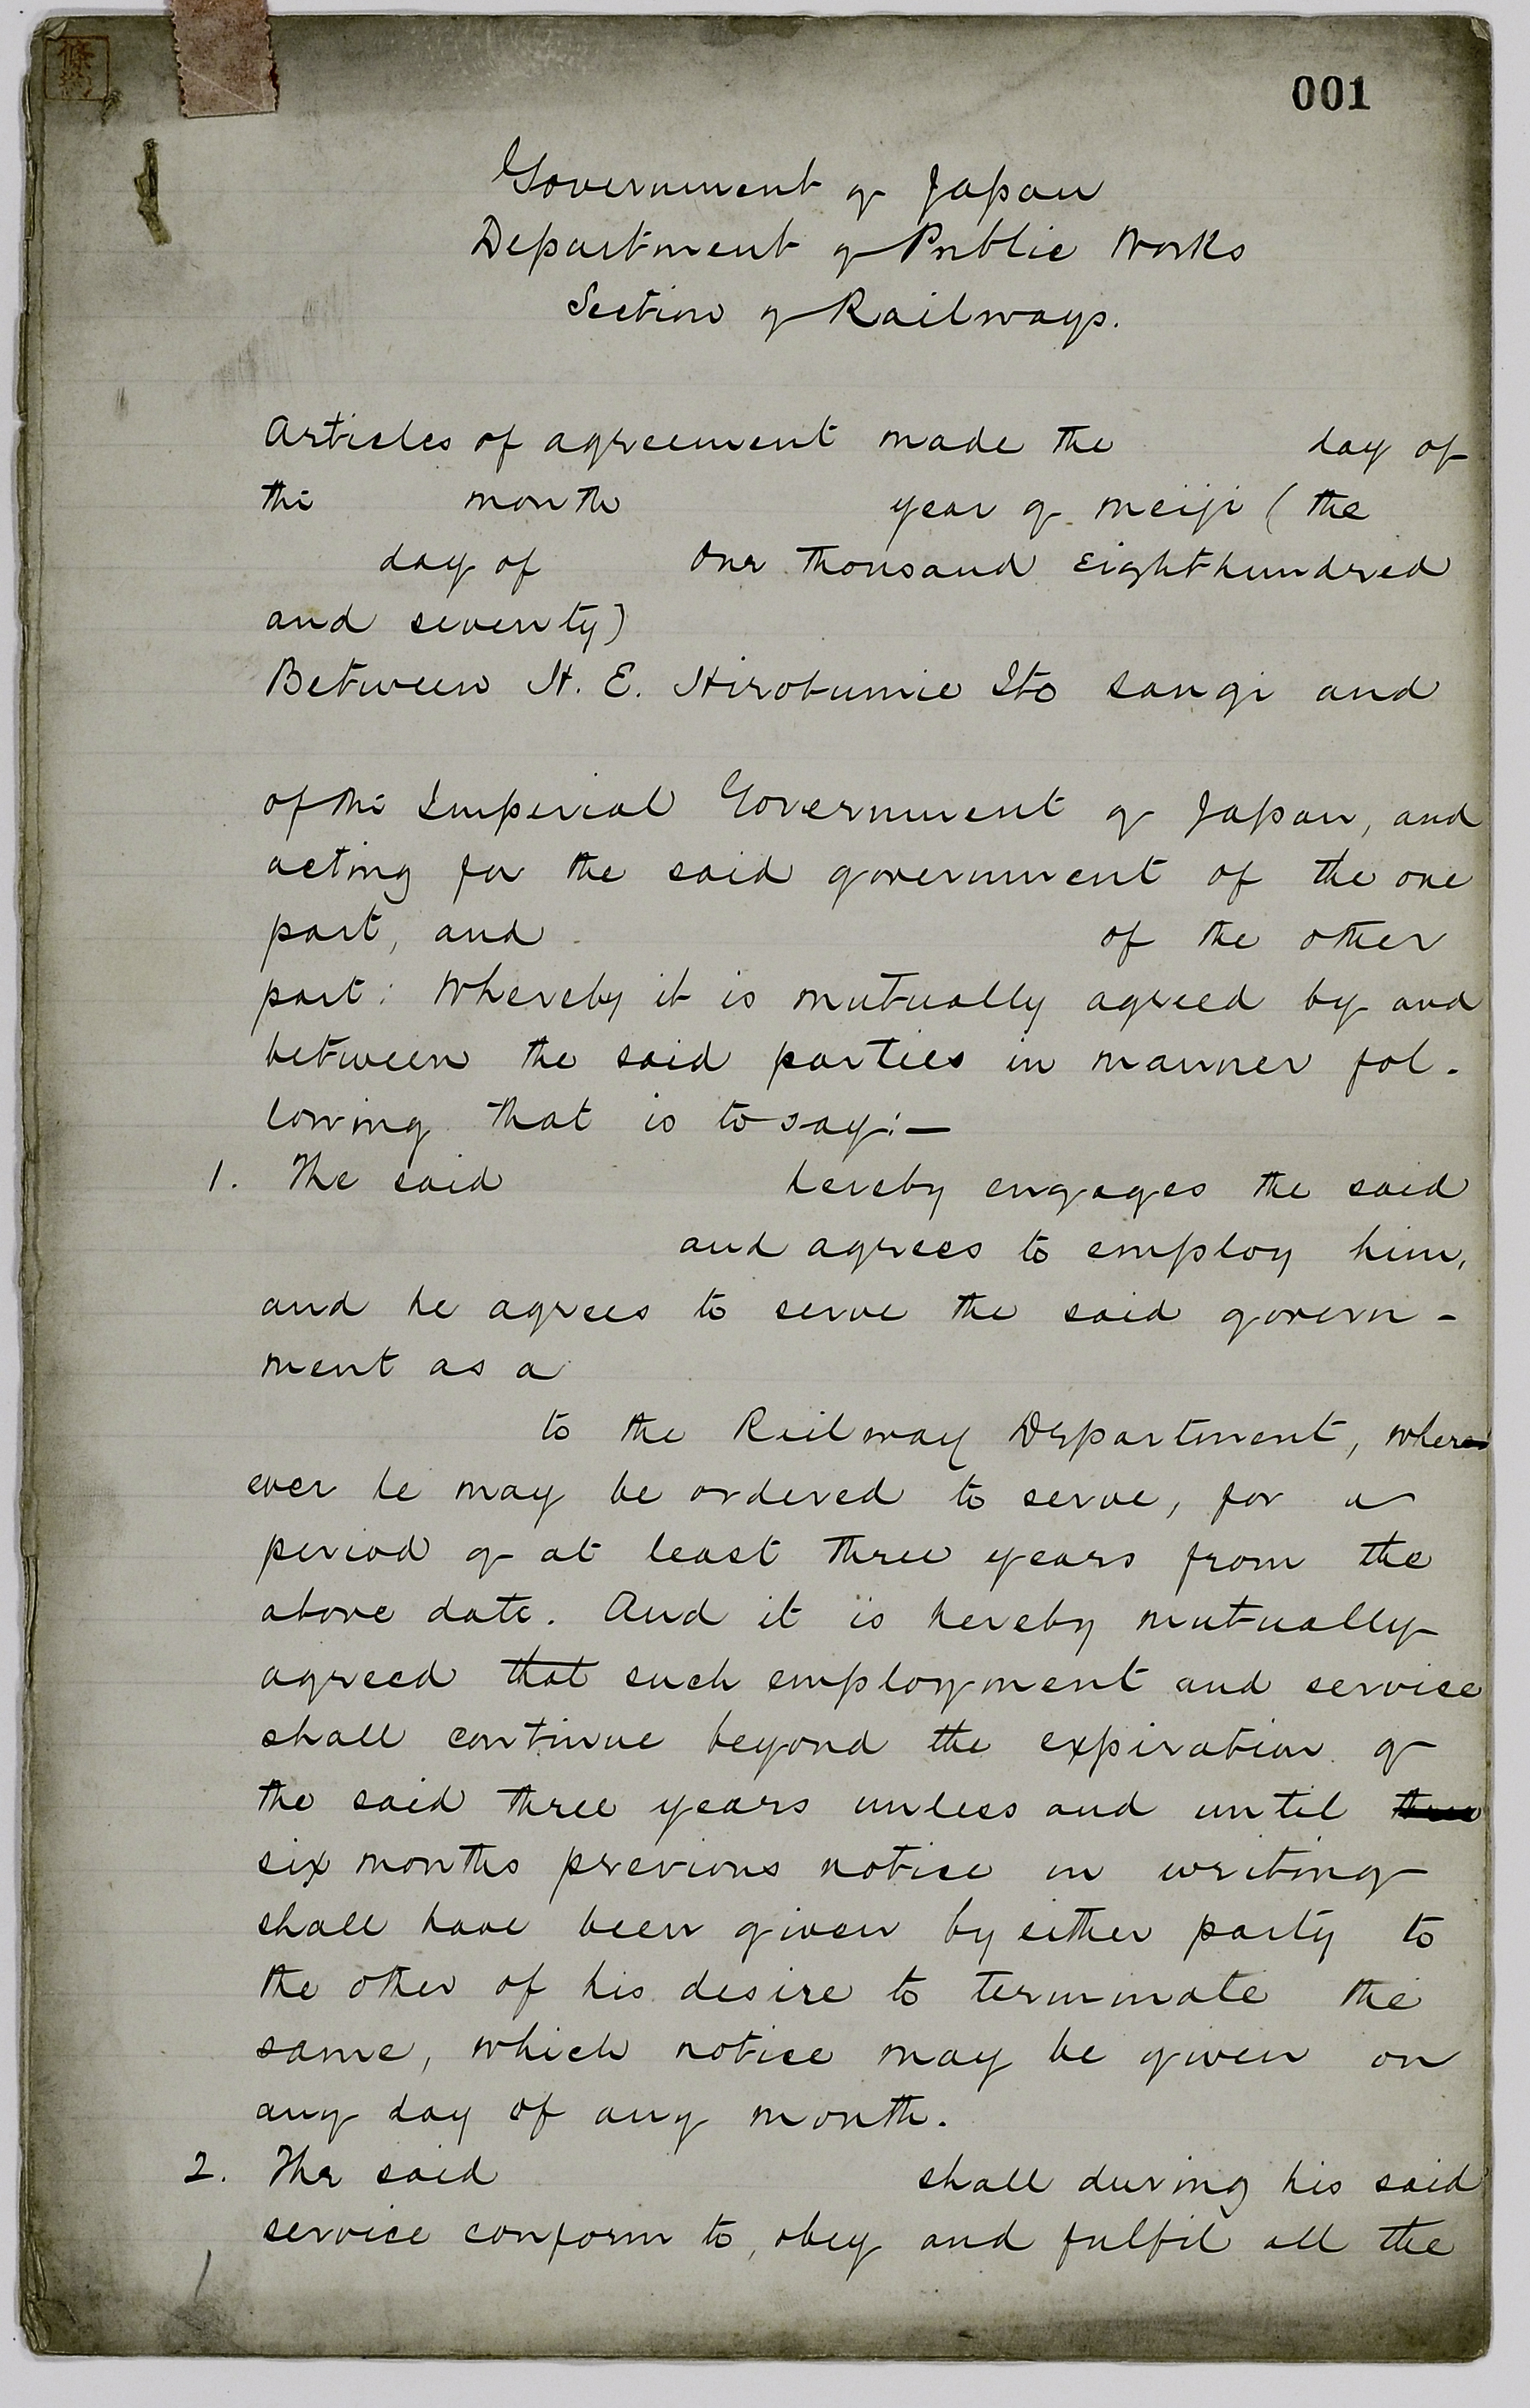 條約
001
Government of Japan
Department of Public Works
Section of Railways.
Articles of agreement made the day of
the month year of Meiji (the
day of One Thousand Eight hundred
and seventy)
Between H. E. Hirobumie Ito Sangi and
of the Imperial Government of Japan, and
acting for the said government of the one
part, and of the other
part: Whereby it is mutually agreed by and
between the said parties in manner fol-
lowing that is to say:—
1. The said hereby engages the said
and agrees to employ him,
and he agrees to serve the said govern-
ment as a
to the Railway Department, where
ever he may be ordered to serve, for a
period of at least three years from the
above date. And it is hereby mutually
agreed that such employment and service
shall continue beyond the expiration of
the said three years unless and until
six months previous notice in writing
shall have been given by either party to
the other of his desire to terminate the
same, which notice may be given on
any day of any month.
2. The said shall during his said
service conform to, obey and fulfil all the